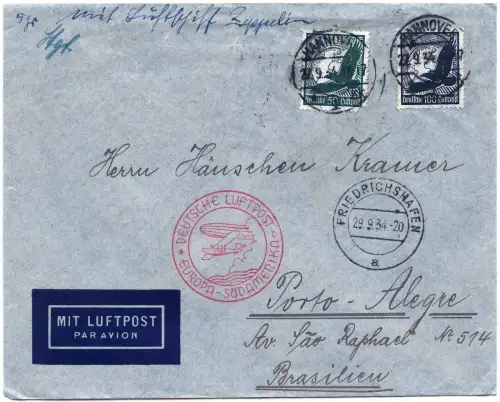 mit Luftschiff Zeppelin
Stgt.
HANNOVER
22.9.34
Deutsche 50 Luftpost
HANNOVER
22.9.34
Deutsche 100 Luftpost
Herrn Hänschen Kramer
DEUTSCHE LUFTPOST
EUROPA-SÜDAMERIKA
FRIEDRICHSHAFEN
29.9.34.-20
a
Porto-Alegre
Av. São Raphael Nº 514
Brasilien
MIT LUFTPOST
PAR AVION